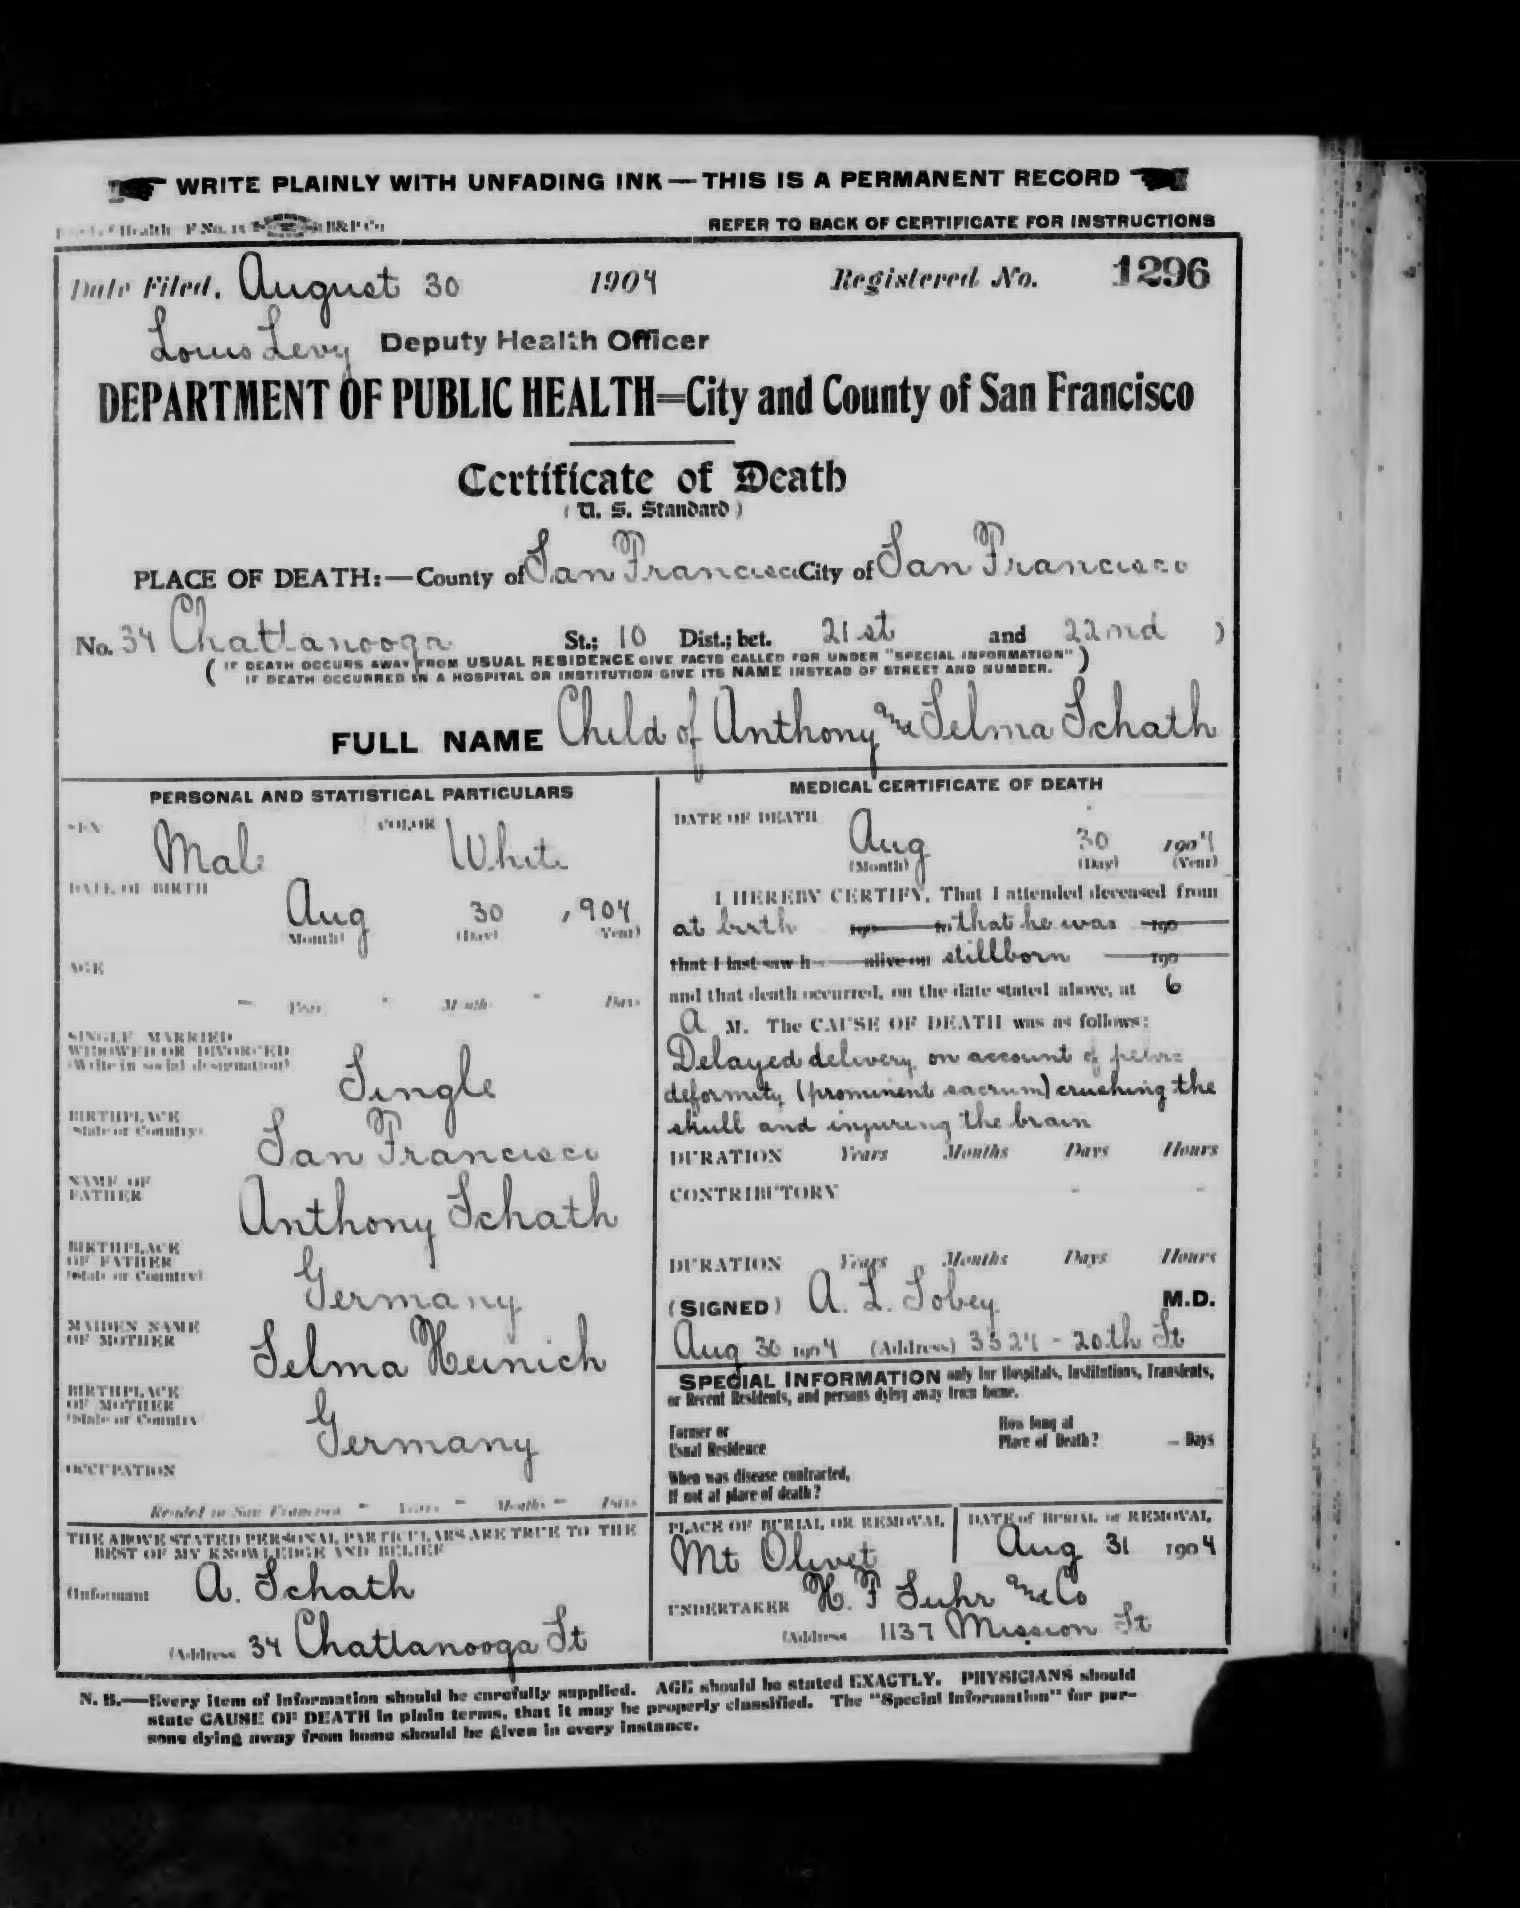 WRITE PLAINLY WITH UNFADING INK — THIS IS A PERMANENT RECORD
Health F No. 15 H&P Co
REFER TO BACK OF CERTIFICATE FOR INSTRUCTIONS
Date Filed, August 30 1904 Registered No. 1296
Louis Levy Deputy Health Officer
DEPARTMENT OF PUBLIC HEALTH=City and County of San Francisco
Certificate of Death
(U. S. Standard)
PLACE OF DEATH:—County of San Francisco City of San Francisco
No. 34 Chattanooga St.; 10 Dist.; bet. 21st and 22nd )
( IF DEATH OCCURS AWAY FROM USUAL RESIDENCE GIVE FACTS CALLED FOR UNDER "SPECIAL INFORMATION" )
IF DEATH OCCURRED IN A HOSPITAL OR INSTITUTION GIVE ITS NAME INSTEAD OF STREET AND NUMBER.
FULL NAME Child of Anthony and Selma Schath
PERSONAL AND STATISTICAL PARTICULARS
SEX Male COLOR White
DATE OF BIRTH
Aug 30 , 904
(Month) (Day) (Year)
AGE
Years Months Days
SINGLE MARRIED
WIDOWED OR DIVORCED
(Write in social designation)
Single
BIRTHPLACE
(State or Country)
San Francisco
NAME OF
FATHER
Anthony Schath
BIRTHPLACE
OF FATHER
(State or Country)
Germany
MAIDEN NAME
OF MOTHER
Selma Heinich
BIRTHPLACE
OF MOTHER
(State or Country)
Germany
OCCUPATION
Resided in San Francisco – Years – Months – Days
THE ABOVE STATED PERSONAL PARTICULARS ARE TRUE TO THE
BEST OF MY KNOWLEDGE AND BELIEF
(Informant A. Schath
(Address 34 Chattanooga St
MEDICAL CERTIFICATE OF DEATH
DATE OF DEATH
Aug 30 1904
(Month) (Day) (Year)
I HEREBY CERTIFY, That I attended deceased from
at birth 190 to that he was 190
that I last saw h alive on stillborn 190
and that death occurred, on the date stated above, at 6
A M. The CAUSE OF DEATH was as follows:
Delayed delivery on account of pelvic
deformity (prominent sacrum) crushing the
skull and injuring the brain
DURATION Years Months Days Hours
CONTRIBUTORY
DURATION Years Months Days Hours
(SIGNED) A. L. Sobey M.D.
Aug 30 1904 (Address) 3324 - 20th St
SPECIAL INFORMATION only for Hospitals, Institutions, Transients,
or Recent Residents, and persons dying away from home.
Former or
Usual Residence
How long at
Place of Death? – Days
When was disease contracted,
If not at place of death?
PLACE OF BURIAL OR REMOVAL
Mt Olivet
DATE of BURIAL or REMOVAL
Aug 31 1904
UNDERTAKER H. F Suhr and Co
(Address 1137 Mission St
N. B.—Every item of information should be carefully supplied. AGE should be stated EXACTLY. PHYSICIANS should
state CAUSE OF DEATH in plain terms, that it may be properly classified. The "Special Information" for per-
sons dying away from home should be given in every instance.